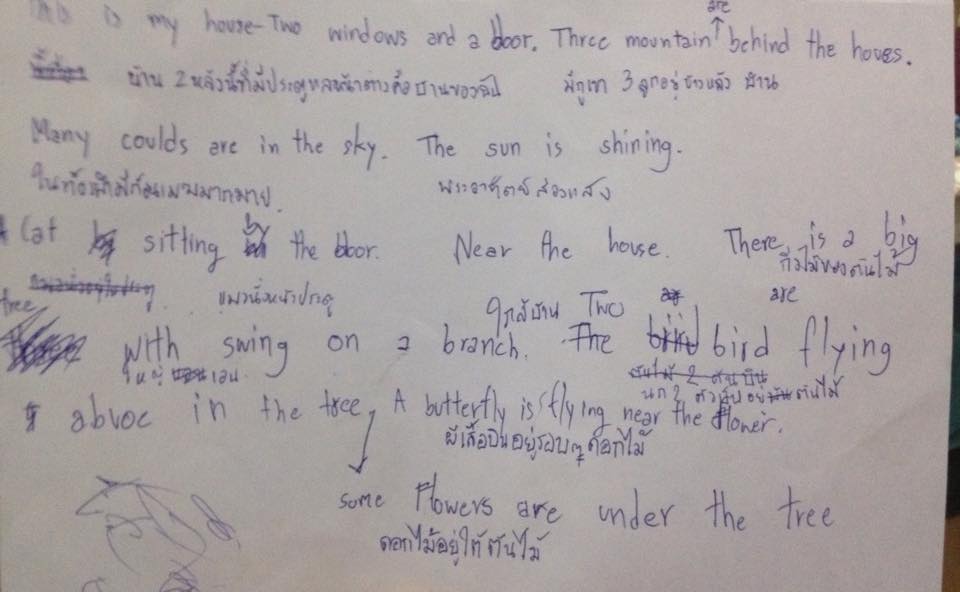 This is my house-Two windows and a door. Three mountain are behind the houes.
บ้าน 2 หลังนี้ที่มีประตูหลหน้าต่างคือบ้านของฉัน มีภูเขา 3 ลูกอยู่ข้างหลัง บ้าน
Many coulds are in the sky. The sun is shining.
ในท้องฟ้ามีก้อนเมฆมากมาย. พระอาทิตย์ส่องแสง
Cat sitting by the door. Near the house. There is a big
กิ่งไม้ของต้นไม้
แมวนั่งหน้าประตู
tree with swing on a branch. Two bird are flying
ใกล้บ้าน
ใหญ่
นก 2 ตัวบินอยู่ ต้นไม้
abvoc in the tree, A butterfly is flying near the flower.
ผีเสื้อบินอยู่รอบๆดอกไม้
some Flowers are under the tree
ดอกไม้อยู่ใต้ต้นไม้